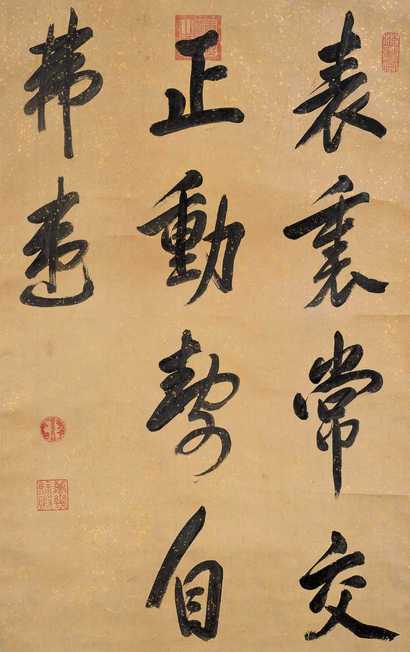 表裏常交
正動靜自
弗違